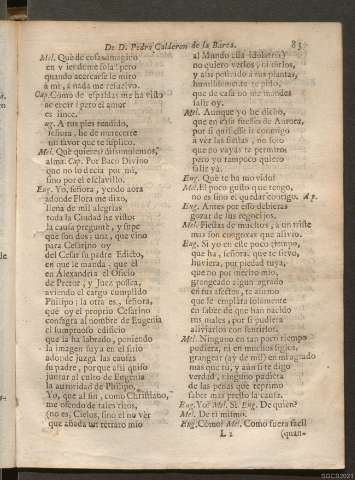 De D. Pedro Calderon de la Barca. 83
Mel. Què de cosas imagino
en viendome sola! pero
quando acercarse le miro
à mi, à nada me relativo.
Cap. Como de espaldas me ha visto
se cree! pero el amor
es lince.
Eug. A tus pies rendido,
señora, he de merecerte
un favor que te suplico.
Mel. Què quieres? dissimulemos,
alma. Cap. Por Baco Divino
que no lo decia por mi,
sino por el esclavillo.
Eug. Yo, señora, yendo aora
adonde Flora me dixo,
llena de mil alegrias
toda la Ciudad he visto:
la causa preguntè, y supe
que son dos: una, que vino
para Cesarino oy
del Cesar su padre Edicto,
en que le manda, que èl
en Alexandria el Oficio
de Pretor, y Juez possea,
aviendo el cargo cumplido
Philipo: la otra es, señora,
que oy el proprio Cesarino
consagra al nombre de Eugenia
el sumptuoso edificio
que la ha labrado, poniendo
la imagen suya en el sitio
adonde juzga las causas
su padre, porque assi quiso
juntar al culto de Eugenia
la autoridad de Philipo.
Yo, que al fin, como Christiano,
me ofendo de tales ritos,
(no es, Cielos, sino el no vèr
que añada un retrato mio
al Mundo essa idolatria)
no quiero verlos, ni oirlos,
y assi postrado à tus plantas,
humildemente te pido,
que de casa no me mandes
salir oy.
Mel. Aunque yo he dicho,
que en casa fuesses de Aurelio,
por si quisiesse ir conmigo
à ver las fiestas, no solo
que no vayas te permito;
pero yo tampoco quiero
salir ya.
Eug. Què te ha movido?
Mel. El poco gusto que tengo,
no es sino el quedar contigo. Ap.
Eug. Antes por esso debieras
gozar de los regocijos.
Mel. Fiestas de muchos, à un triste
mas son congoxas que alivio.
Eug. Si yo en este poco tiempo,
que ha, señora, que te sirvo,
huviera, por piedad tuya,
que no por merito mio,
grangeado algun agrado
en tus afectos, te asseguro
que le empleàra solamente
en saber de que han nacido
tus males, por si pudiera
aliviarlos con sentirlos.
Mel. Ninguno en tan poco tiempo
pudiera, ni en muchos siglos,
grangear (ay de mi!) en mi agrado
mas que tu, y aun si te digo
verdad, ninguno pudiera
de las penas que reprimo
saber mas presto la causa.
Eug. Yo? Mel. Si. Eug. De quien?
Mel. De ti mismo.
Eug. Còmo? Mel. Como fuera facil
L 2 (quan-
SGCS2021